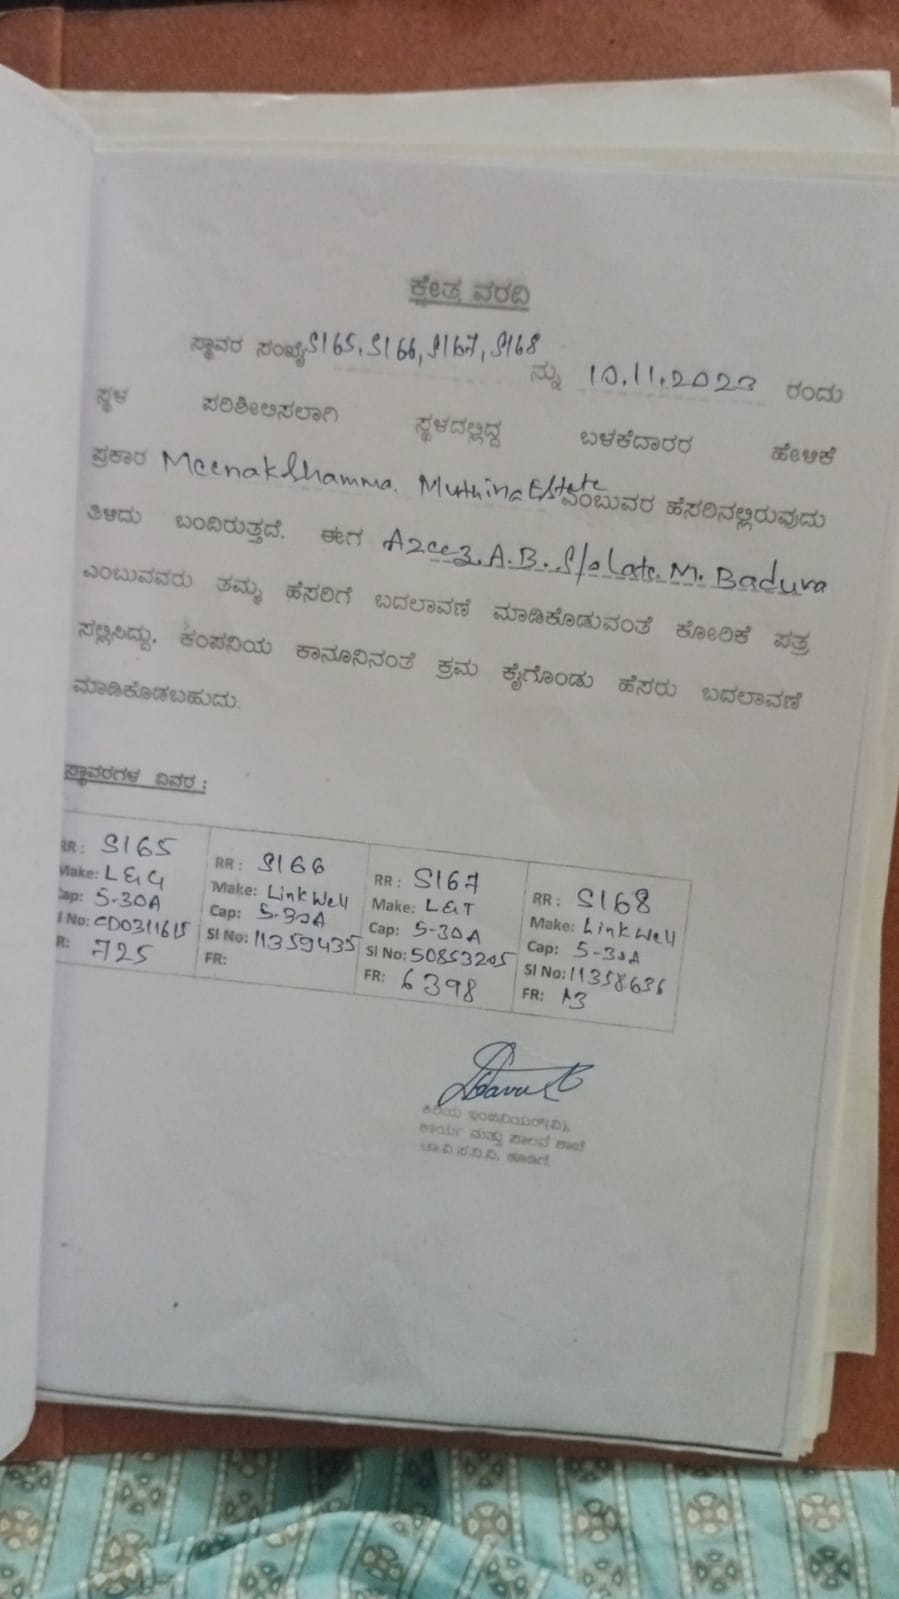 ಕ್ಷೇತ್ರ ವರದಿ
ಸ್ಥಾವರ ಸಂಖ್ಯೆ S165, S166, S167, S168 ನ್ನು 10.11.2023 ರಂದು
ಸ್ಥಳ ಪರಿಶೀಲಿಸಲಾಗಿ ಸ್ಥಳದಲ್ಲಿದ್ದ ಬಳಕೆದಾರರ ಹೇಳಿಕೆ
ಪ್ರಕಾರ Meenakshamma. Muthina Estate ಎಂಬುವರ ಹೆಸರಿನಲ್ಲಿರುವುದು
ತಿಳಿದು ಬಂದಿರುತ್ತದೆ. ಈಗ Azeez A.B. S/o Late. M. Baduva
ಎಂಬುವವರು ತಮ್ಮ ಹೆಸರಿಗೆ ಬದಲಾವಣೆ ಮಾಡಿಕೊಡುವಂತೆ ಕೋರಿಕೆ ಪತ್ರ
ಸಲ್ಲಿಸಿದ್ದು, ಕಂಪನಿಯ ಕಾನೂನಿನಂತೆ ಕ್ರಮ ಕೈಗೊಂಡು ಹೆಸರು ಬದಲಾವಣೆ
ಮಾಡಿಕೊಡಬಹುದು.
ಸ್ಥಾವರಗಳ ವಿವರ :
RR : S165
Make: L&G
Cap: 5-30A
l No: CD0311615
R: 725
RR : S166
Make: Linkwell
Cap: 5-30A
Sl No: 11359435
FR:
RR : S167
Make: L&T
Cap: 5-30A
Sl No: 50853205
FR: 6398
RR : S168
Make: Linkwell
Cap: 5-30A
Sl No: 11358636
FR: 13
ಕಿರಿಯ ಇಂಜಿನಿಯರ್(ವಿ),
ಕಾರ್ಯ ಮತ್ತು ಪಾಲನೆ ಶಾಖೆ
ಚಾ.ವಿ.ಸ.ನಿ.ನಿ. ಕೂಡಿಗೆ.